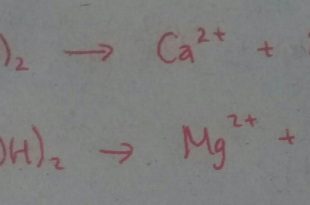 )₂ → Ca²⁺ +
OH)₂ → Mg²⁺ +